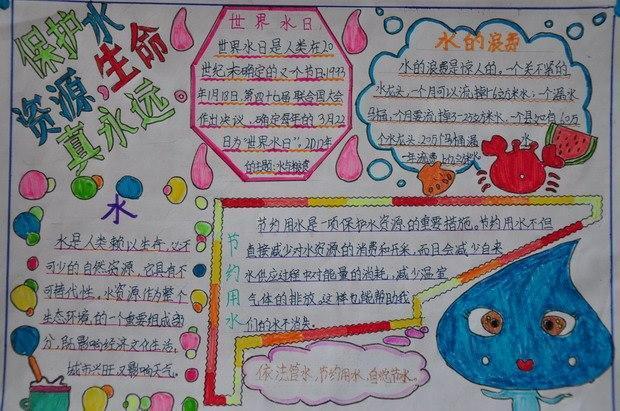 保护水
资源,生命
真永远
世界水日
世界水日是人类在20
世纪末确定的又一个节日.1993
年1月18日,第四十七届联合国大会
作出决议,确定每年的3月22
日为“世界水日”,2012年
的主题:水与粮食
水的浪费
水的浪费是惊人的,一个关不紧的
水龙头,一个月可以流掉
马桶,一个月要流掉3-25立方米水,一个县如有60万
个水龙头,20万个马桶漏水
一年浪费上亿立方米
水
水是人类赖以生存,必不
可少的自然资源,它具有不
可替代性,水资源作为整个
生态环境,的一个重要组成部
分,既影响经济文化生活,
城市兴旺又影响天气。
节约用水
节约用水是一项保护水资源的重要措施。节约用水不但
直接减少对水资源的消费和开采,而且会减少自来
水供应过程中对能量的消耗,减少温室
气体的排放,这样也能帮助我
们的水不消失。
依法管水,节约用水,自觉节水。